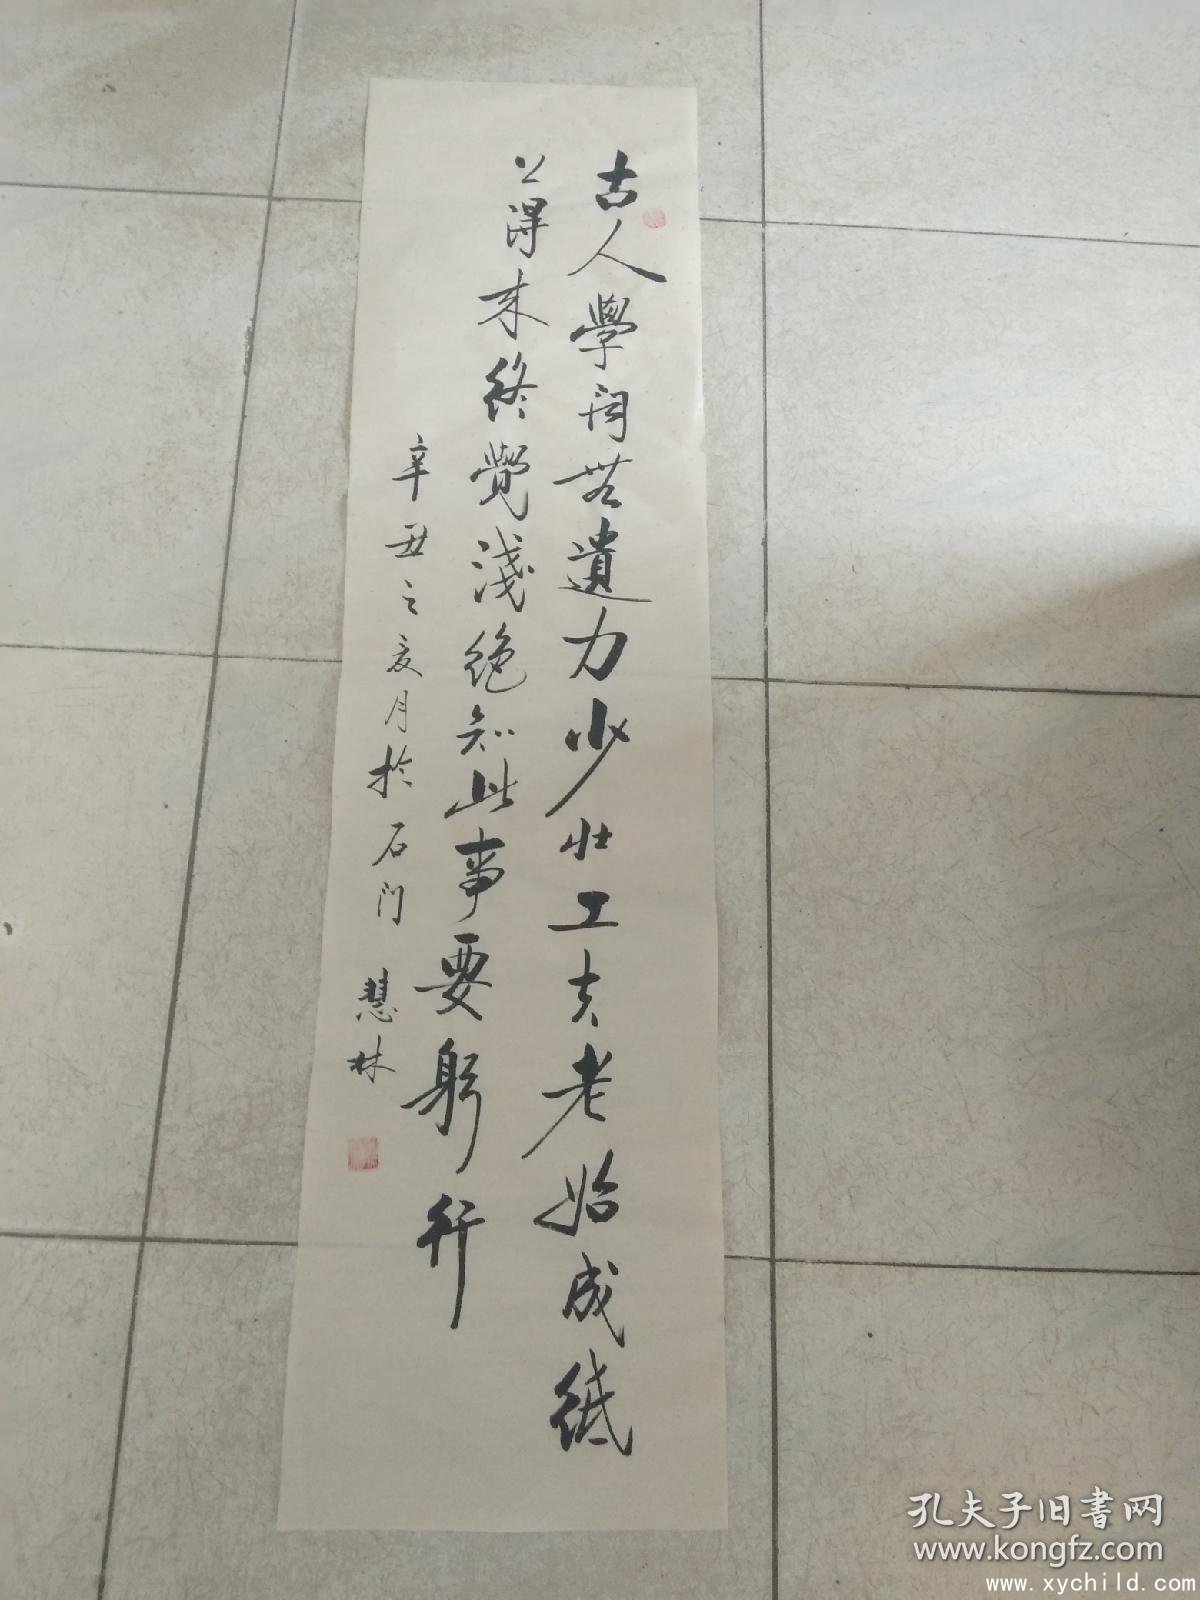 古人學问無遺力少壯工夫老始成紙
上得来终覺淺绝知此事要躬行
辛丑之亥月於石门 慧林
孔夫子旧書网
www.kongfz.com
www.xychild.com